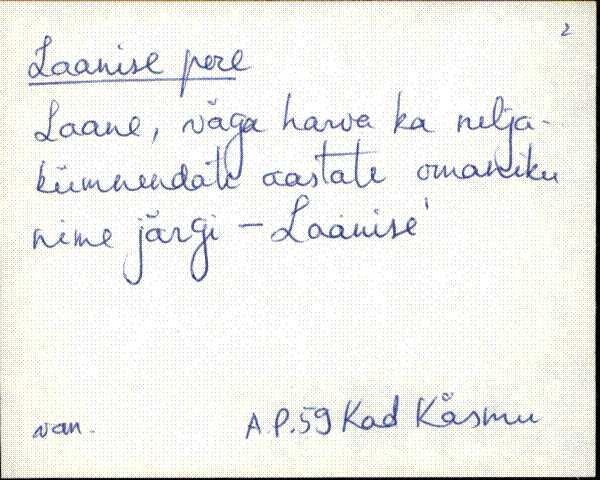 2
Laanise pere
Laane, väga harva ka nelja-
kümnendate aastate omaniku
nime järgi - Laanise'
van. A.P.59 Kad Käsmu